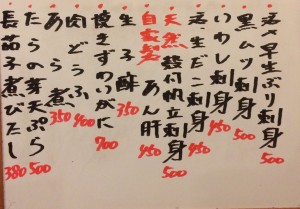 生ぶり刺身 500
黒ムツ刺身 500
いわし刺身 450
生だこ刺身 450
天然殻付帆立刺身 500
自家製 あん肝 450
生子酢 350
焼きずわいがに 700
肉どうふ 400
あら煮 350
たらの芽天ぷら 500
長茄子煮びたし 380